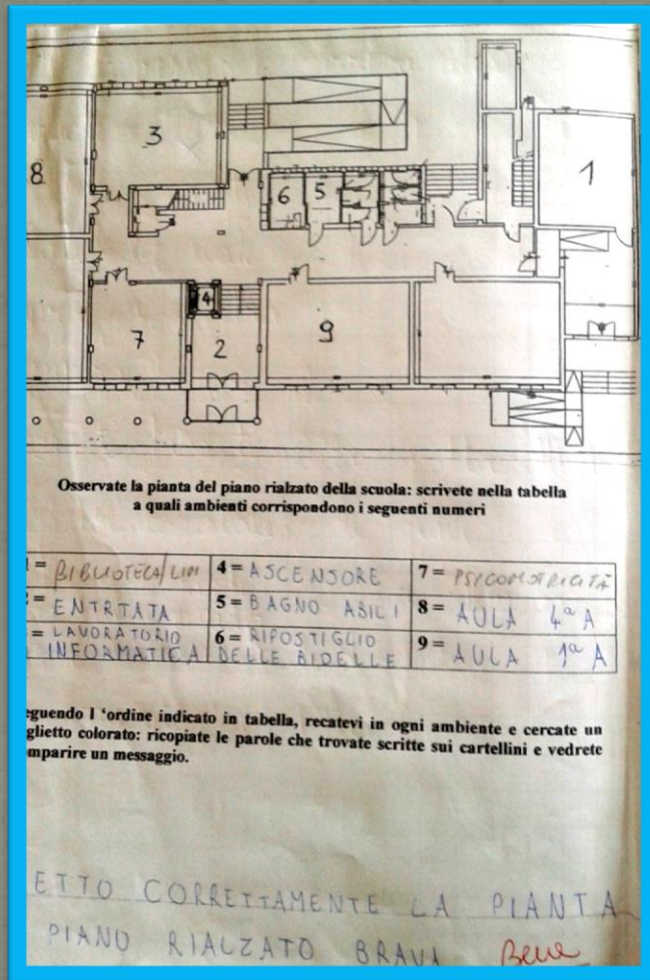 3
8
1
6 5
4
7
2
9
Osservate la pianta del piano rialzato della scuola: scrivete nella tabella
a quali ambienti corrispondono i seguenti numeri
1 = BIBLIOTECA/LIM 4 = ASCENSORE 7 = PSICOMOTRICITÀ
= ENTRTATA 5 = BAGNO ABILI 8 = AULA 4ª A
= LAVORATORIO 6 = RIPOSTIGLIO 9 = AULA 1ª A
INFORMATICA DELLE BIDELLE
eguendo l 'ordine indicato in tabella, recatevi in ogni ambiente e cercate un
glietto colorato: ricopiate le parole che trovate scritte sui cartellini e vedrete
mparire un messaggio.
ETTO CORRETTAMENTE LA PIANTA
PIANO RIALZATO BRAVA Bene